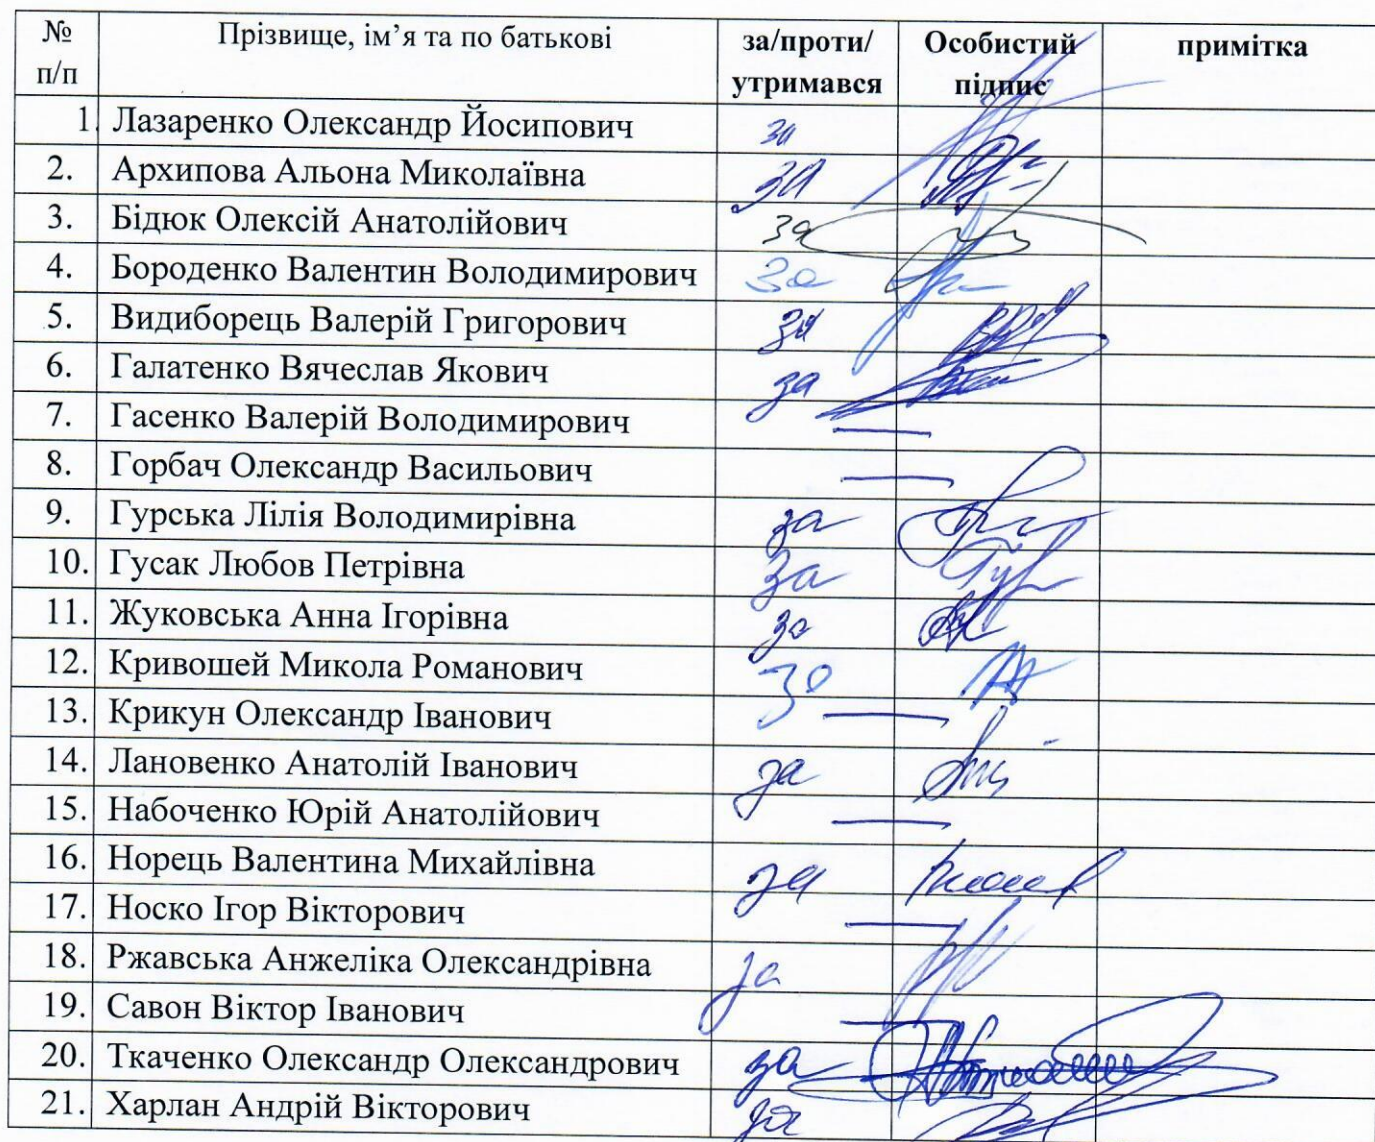 № п/п Прізвище, ім’я та по батькові за/проти/ утримався Особистий підпис примітка
1. Лазаренко Олександр Йосипович за
2. Архипова Альона Миколаївна за
3. Бідюк Олексій Анатолійович за
4. Бороденко Валентин Володимирович за
5. Видиборець Валерій Григорович за
6. Галатенко Вячеслав Якович за
7. Гасенко Валерій Володимирович —
8. Горбач Олександр Васильович —
9. Гурська Лілія Володимирівна за
10. Гусак Любов Петрівна за
11. Жуковська Анна Ігорівна за
12. Кривошей Микола Романович за
13. Крикун Олександр Іванович —
14. Лановенко Анатолій Іванович за
15. Набоченко Юрій Анатолійович —
16. Норець Валентина Михайлівна за
17. Носко Ігор Вікторович —
18. Ржавська Анжеліка Олександрівна за
19. Савон Віктор Іванович —
20. Ткаченко Олександр Олександрович за
21. Харлан Андрій Вікторович за